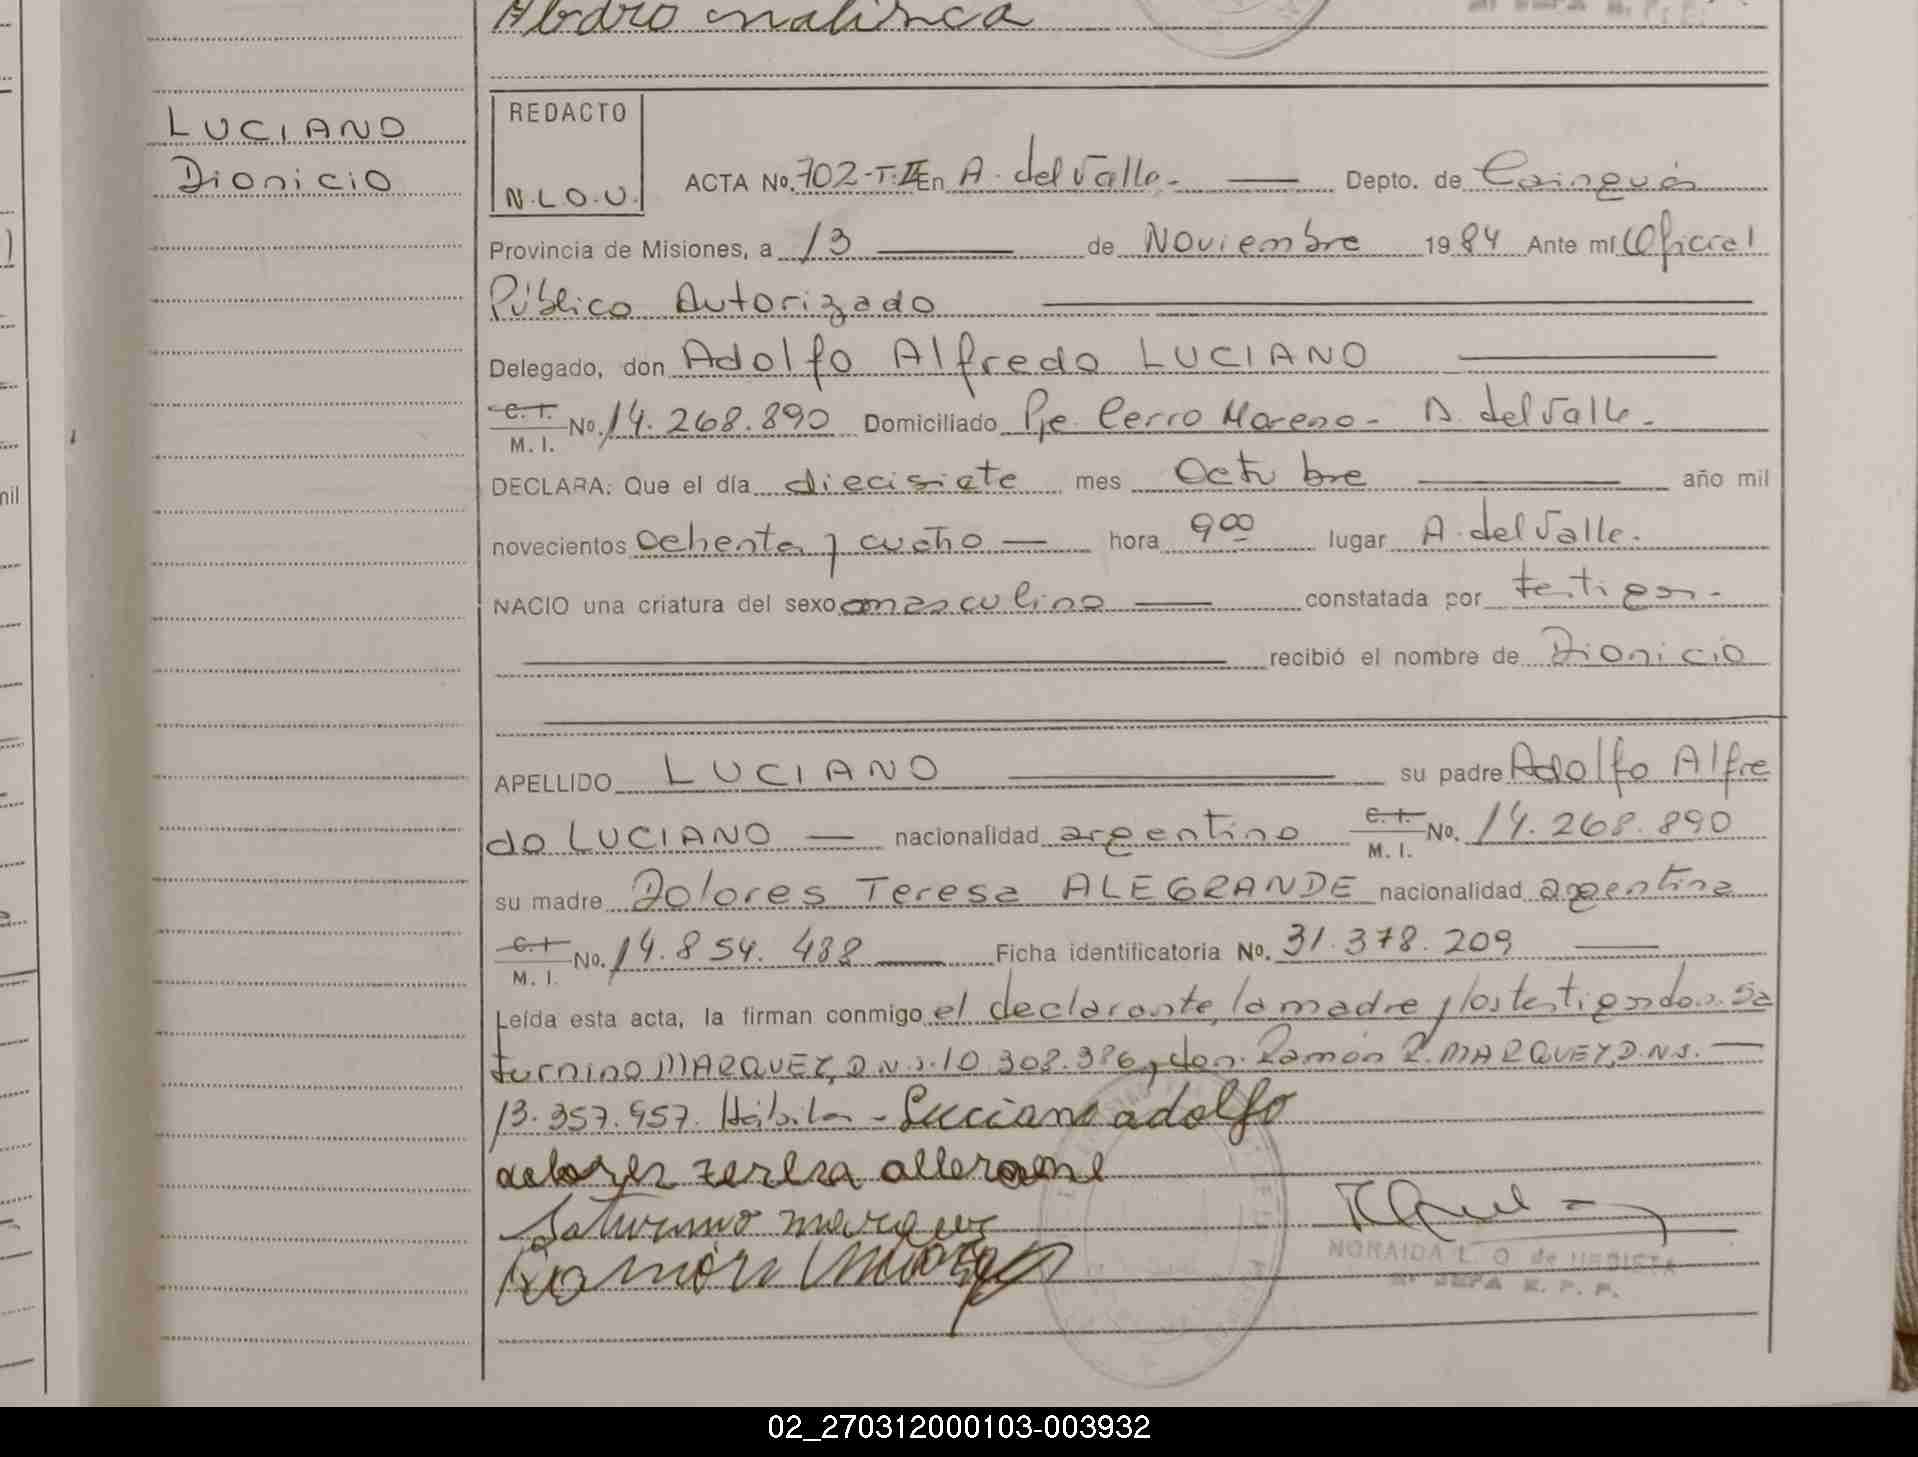 LUCIANO
Dionicio
REDACTO
N.L.O.U.
ACTA No. 702-T.II En A. del Valle.- Depto. de Cainguás
Provincia de Misiones, a 13 de Noviembre 1984 Ante mí Oficial
Público Autorizado
Delegado, don Adolfo Alfredo LUCIANO
C. I.
M. I. No. 14.268.890 Domiciliado Pje. Cerro Moreno- A. del Valle.
DECLARA: Que el día diecisiete mes Octubre año mil
novecientos ochenta y cuatro hora 9 00 lugar A. del Valle.
NACIO una criatura del sexo masculino constatada por testigos.-
recibió el nombre de Dionicio
APELLIDO LUCIANO su padre Adolfo Alfre
do LUCIANO nacionalidad argentino C. I.
M. I. No. 14.268.890
su madre Dolores Teresa ALEGRANDE nacionalidad argentina
C. I.
M. I. No. 14.854.488 Ficha identificatoria No. 31.378.209
Leída esta acta, la firman conmigo el declarante, la madre y los testigos don. Sa
turnino MARQUEZ, D.N.I. 10.308.386, don. Ramón R. MARQUEZ, D.N.I.
13.357.957. Hábiles - Luciano adolfo
Saturnino
Ramón
NORAIDA L. O. de URDIETA
JEFA R. P. P.
02_270312000103-003932